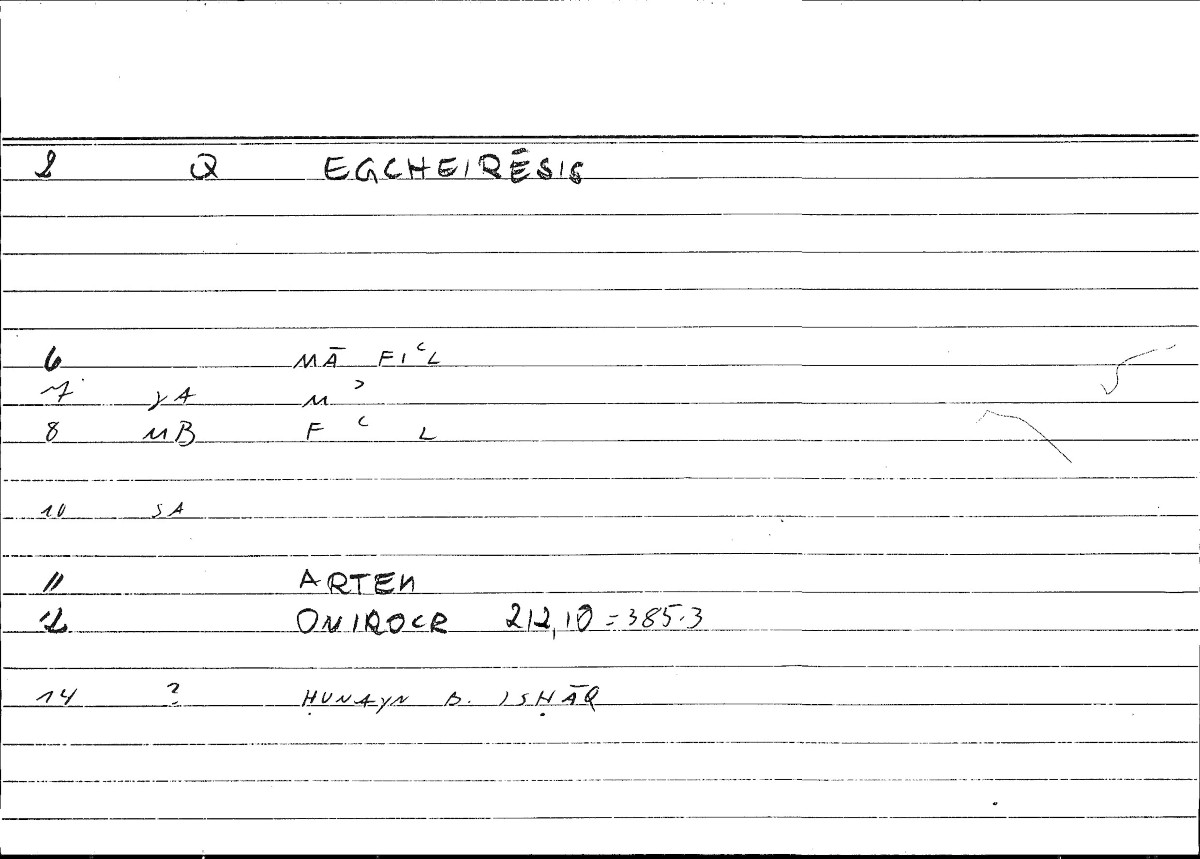 2 Q EGCHEIRĒSIS
6 MĀ FIʿL
7 YA M ʾ
8 MB F ʿ L
10 SA
11 ARTEM
12 ONIROCR 212,10 = 385.3
14 ? ḤUNAYN B. ISḤĀQ